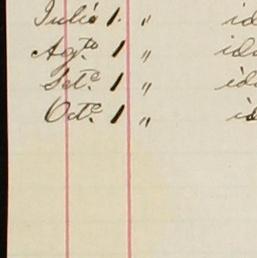 Julio 1. " id
Agto 1 " id
Set.e 1 " id
Oct.e 1 " id